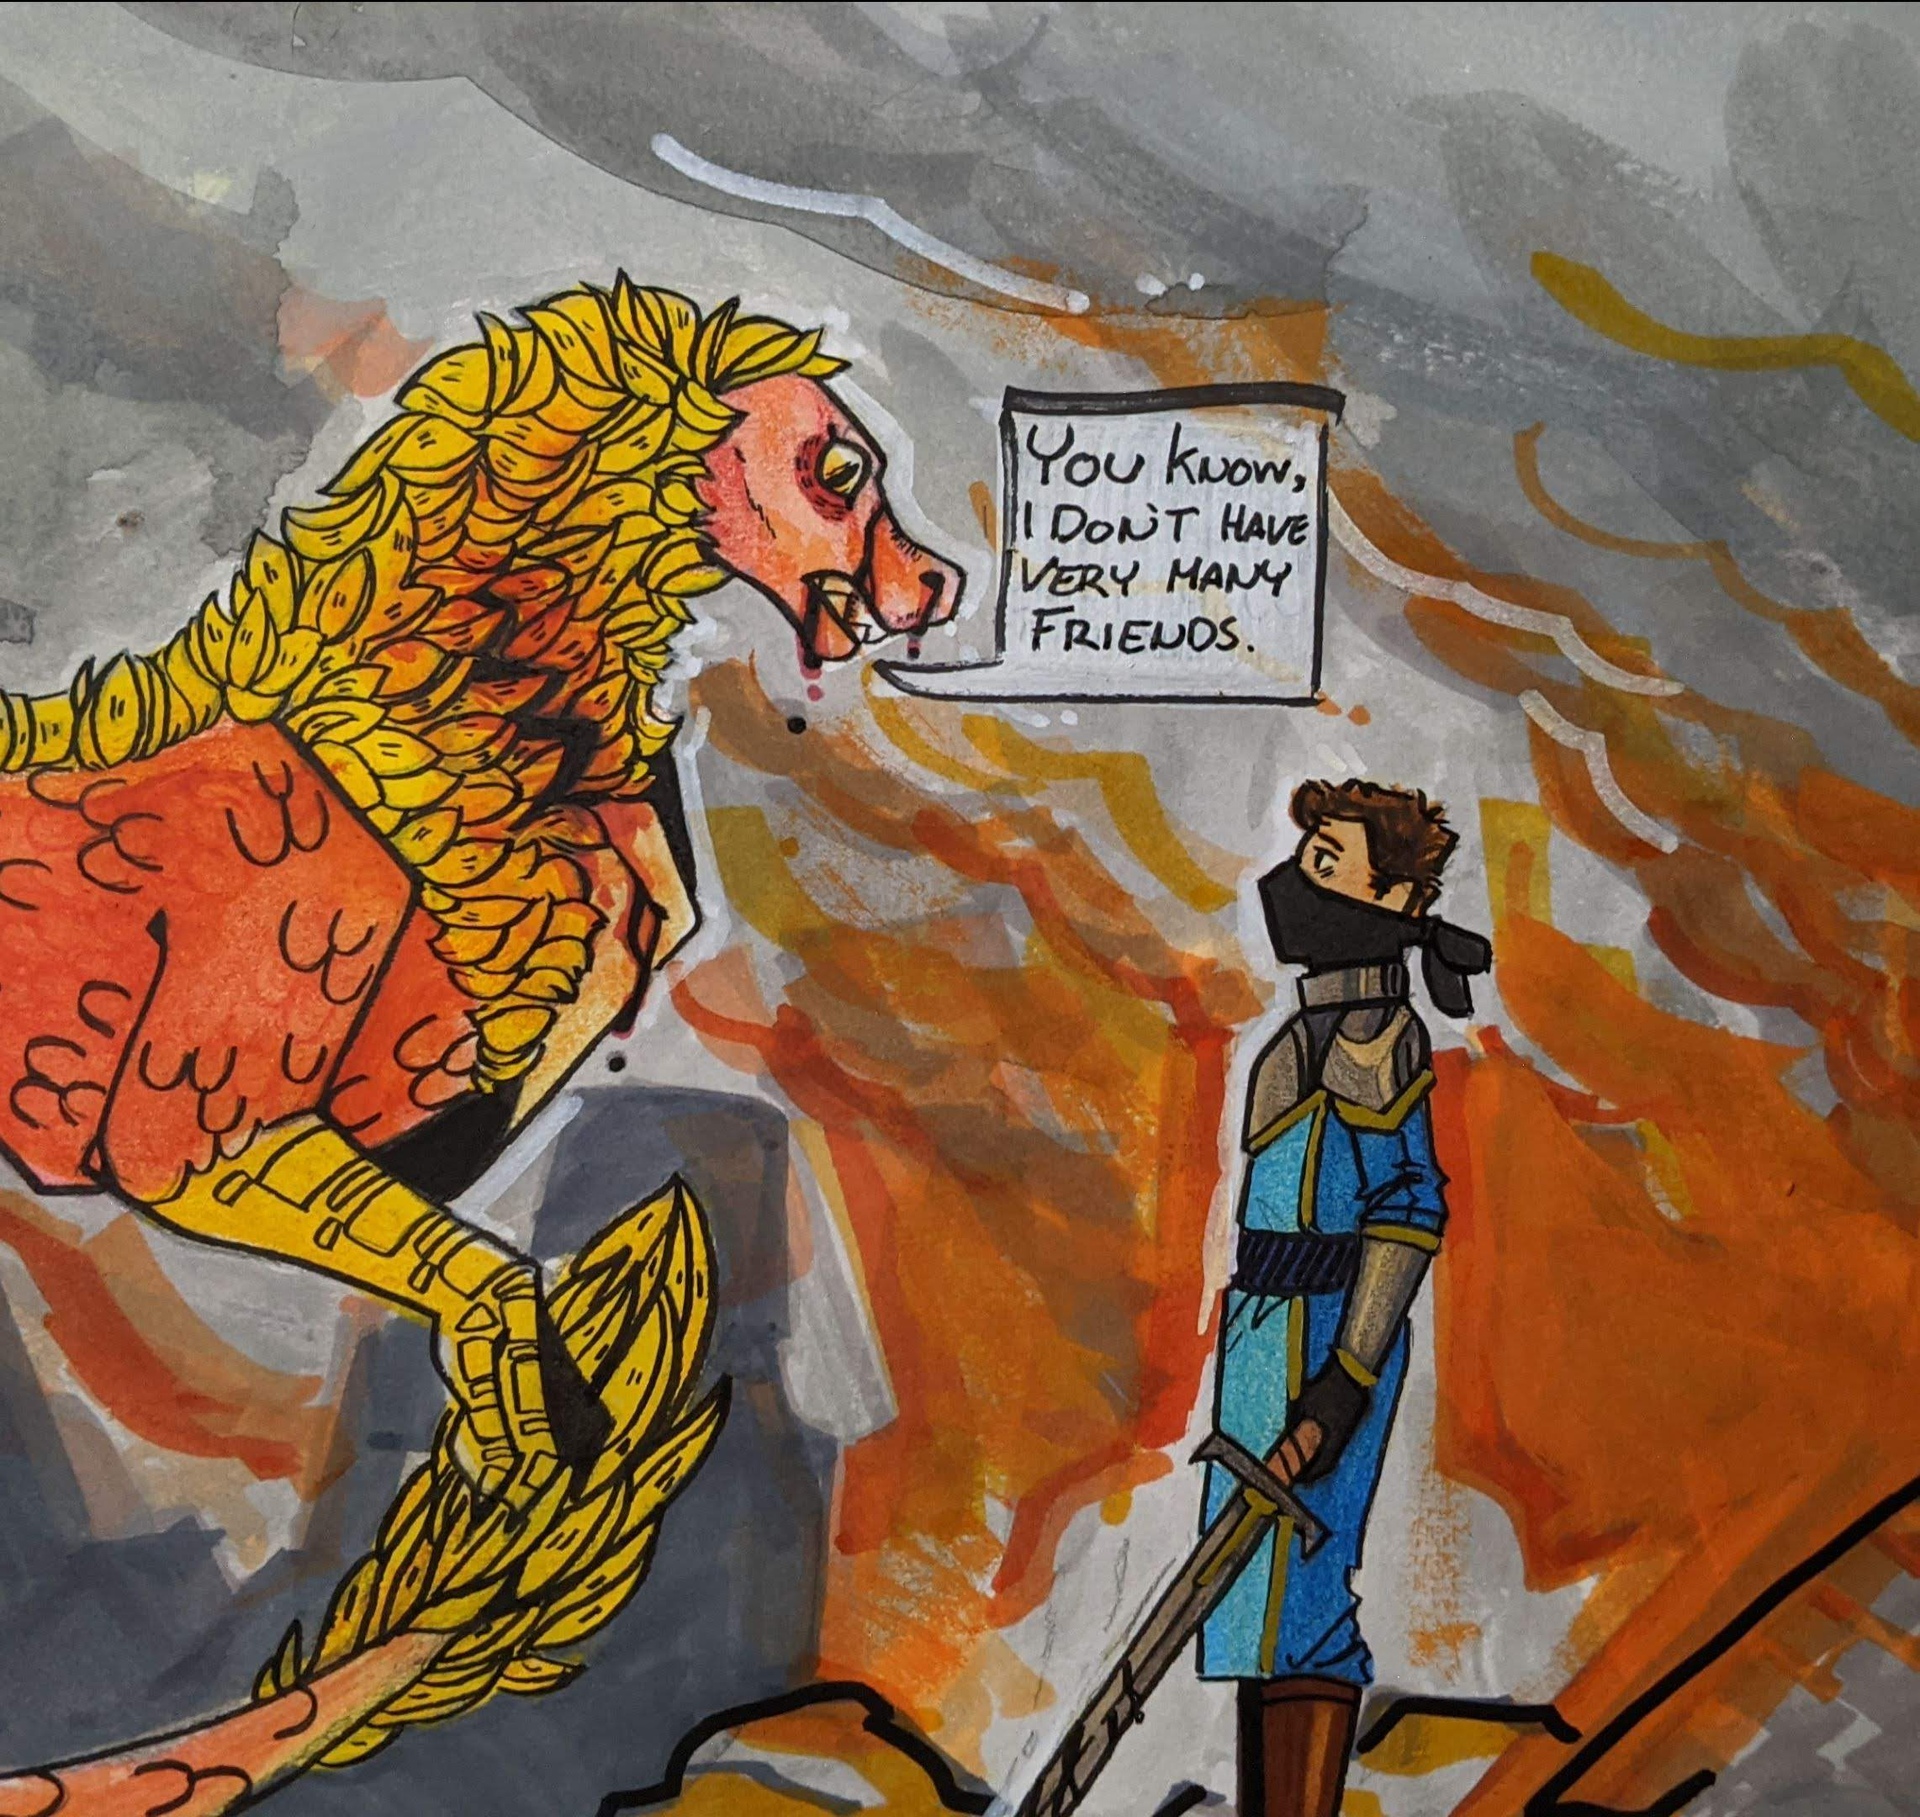 You know,
I DON'T HAVE
VERY MANY
FRIENDS.